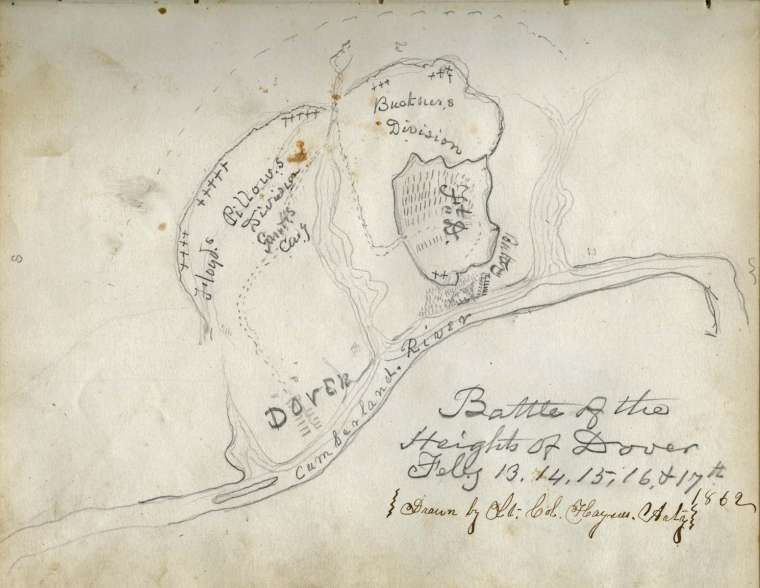 Buckner,s
Division
Pillow,s
Division
Cavy
Floyd,s
Fort
DOVER
Cumberland. River
Battle of the
Heights of Dover
Feby 13. 14. 15, 16, & 17th
1862
{ Drawn by Lt. Col. Haynes. Arty }